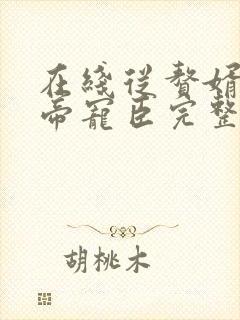 在綫從贅婿
帝寵臣完整
胡桃木